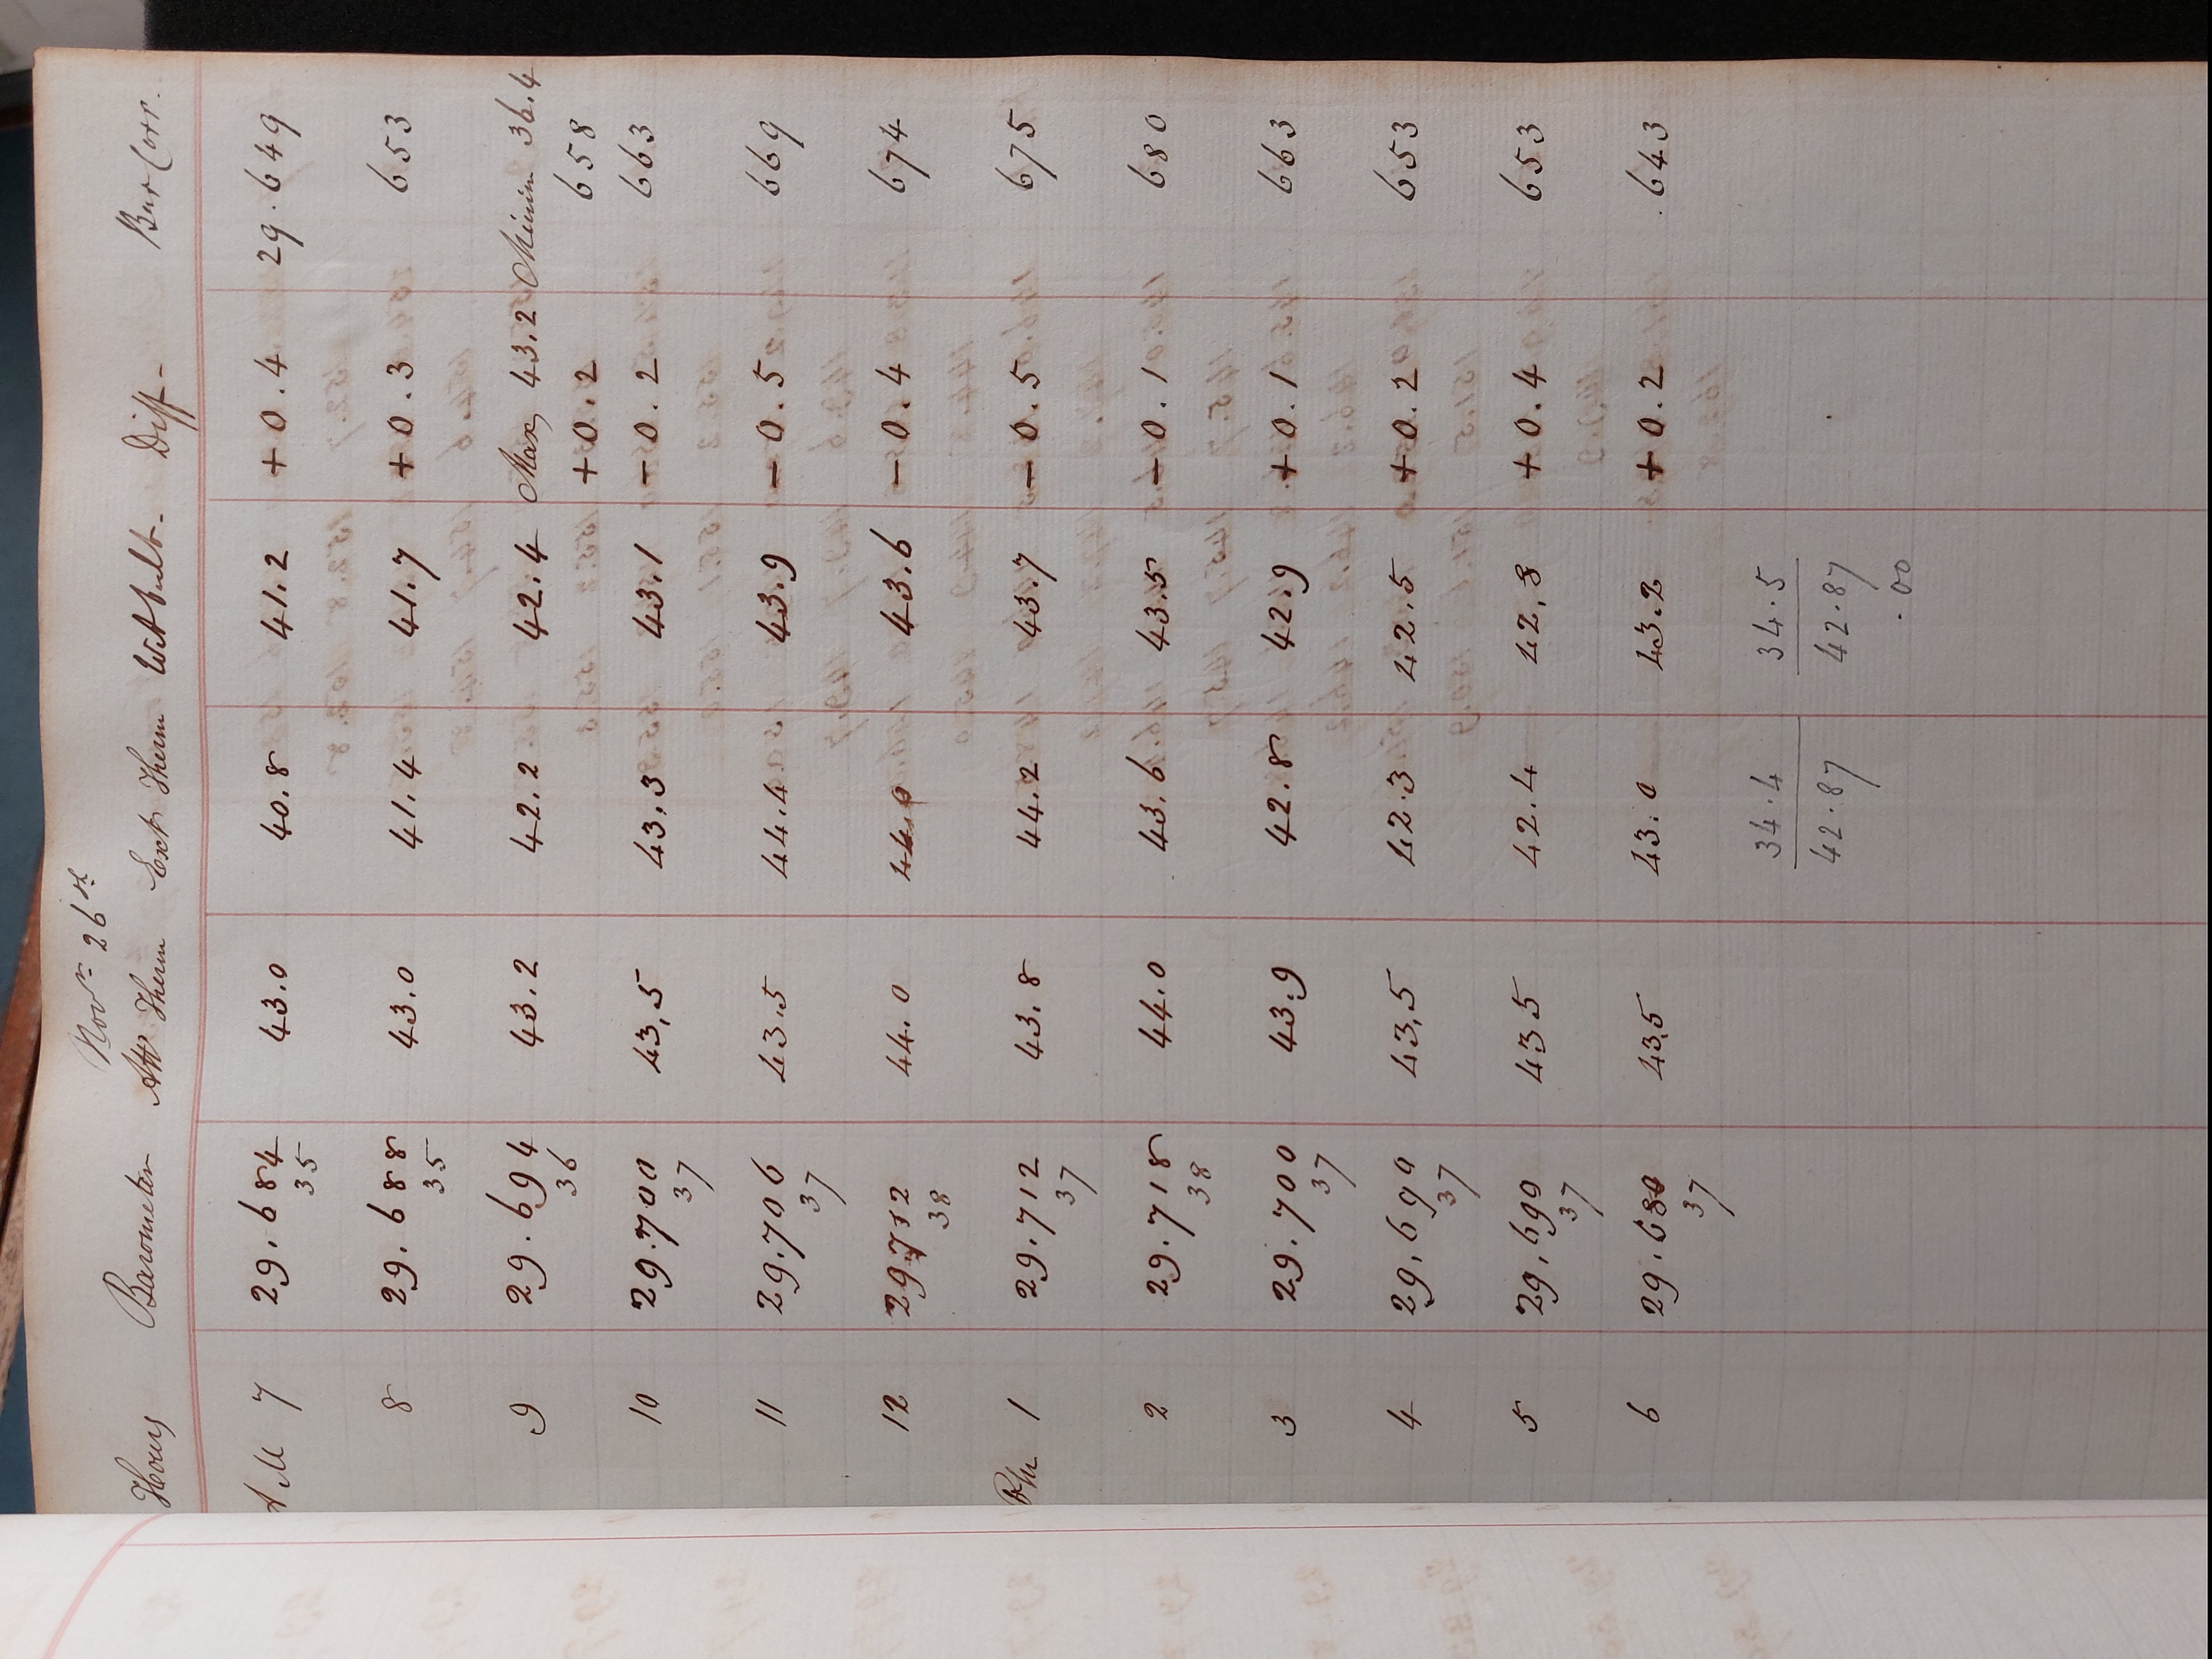 Novr 26th
Hours Barometer Att Therm Ext Therm Wet bulb- Diff- Bar Corr.
AM 7 29.684 43.0 40.8 41.2 +0.4 29.649
35
8 29.688 43.0 41.4 41.7 +0.3 653
35
9 29.694 43.2 42.2 42.4 Max 43.2 Minim 36.4
36 +0.2 658
10 29.700 43,5 43.3 43.1 -0.2 663
37
11 29.706 43.5 44.4 43.9 -0.5 669
37
12 29.712 44.0 44.0 43.6 -0.4 674
38
PM 1 29.712 43.8 44.2 43.7 -0.5 675
37
2 29.718 44.0 43.6 43.5 -0.1 680
38
3 29.700 43.9 42.8 42.9 +0.1 663
37
4 29,690 43,5 42.3 42.5 +0.2 653
37
5 29,690 435 42.4 42,8 +0.4 653
37
6 29.680 43,5 43.0 43.2 +0.2 .643
37
34.4 34.5
42.87 42.87
.00